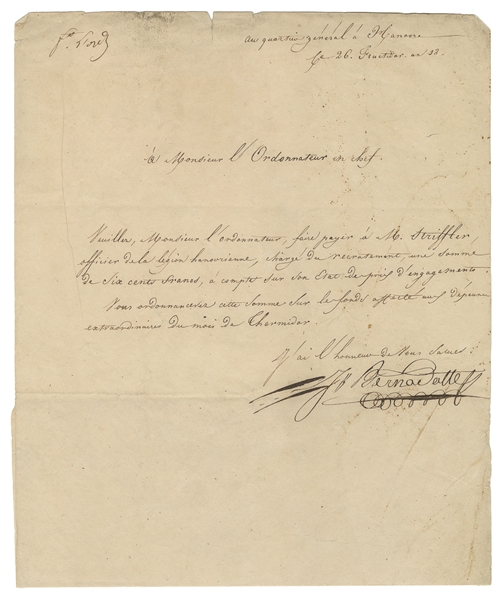 au quartier général à Hanovre
le 26. Fructidor an 13.
à Monsieur l'Ordonnateur en chef.
Veuillez, Monsieur l'ordonnateur, faire payer à M. Striffler,
officier de la légion hanovrienne, chargé du recrutement, une somme
de six cents francs, à compte sur son Etat de prix d'engagements.
Vous ordonnancerez cette somme sur le fonds affecté aux dépenses
extraordinaires du mois de Thermidor.
J'ai l'honneur de vous saluer.
Bernadotte